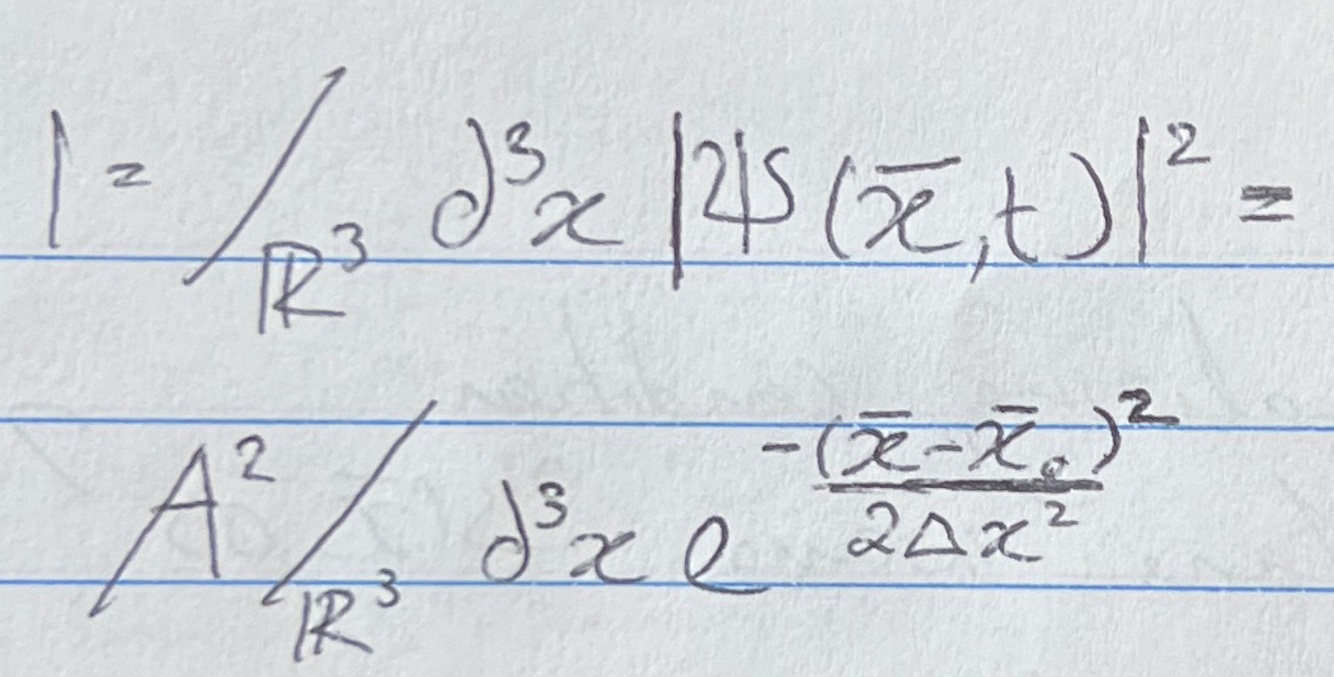 1 = ∫_ℝ³ d³x |ψ(x̄,t)|² =
A² ∫_ℝ³ d³x e^(-(x̄-x̄₀)²/2Δx²)